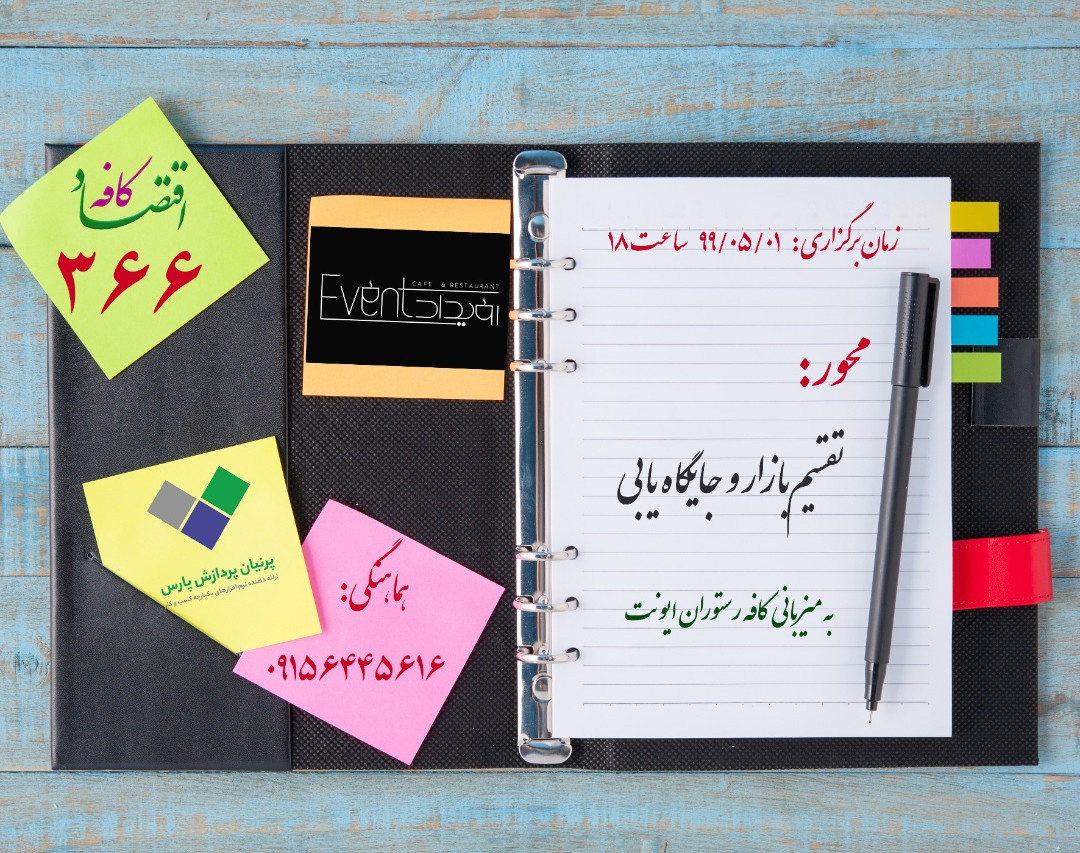 کافه
اقتصاد
۳۶۶
CAFE & RESTAURANT
Event رویداد
زمان برگزاری: ۹۹/۰۵/۰۱ ساعت ۱۸
محور:
تقسیم بازار و جایگاه یابی
به میزبانی کافه رستوران ایونت
پرنیان پردازش پارس
ارائه دهنده نرم افزارهای یکپارچه کسب و کار
هماهنگی:
۰۹۱۵۶۴۴۵۶۱۶